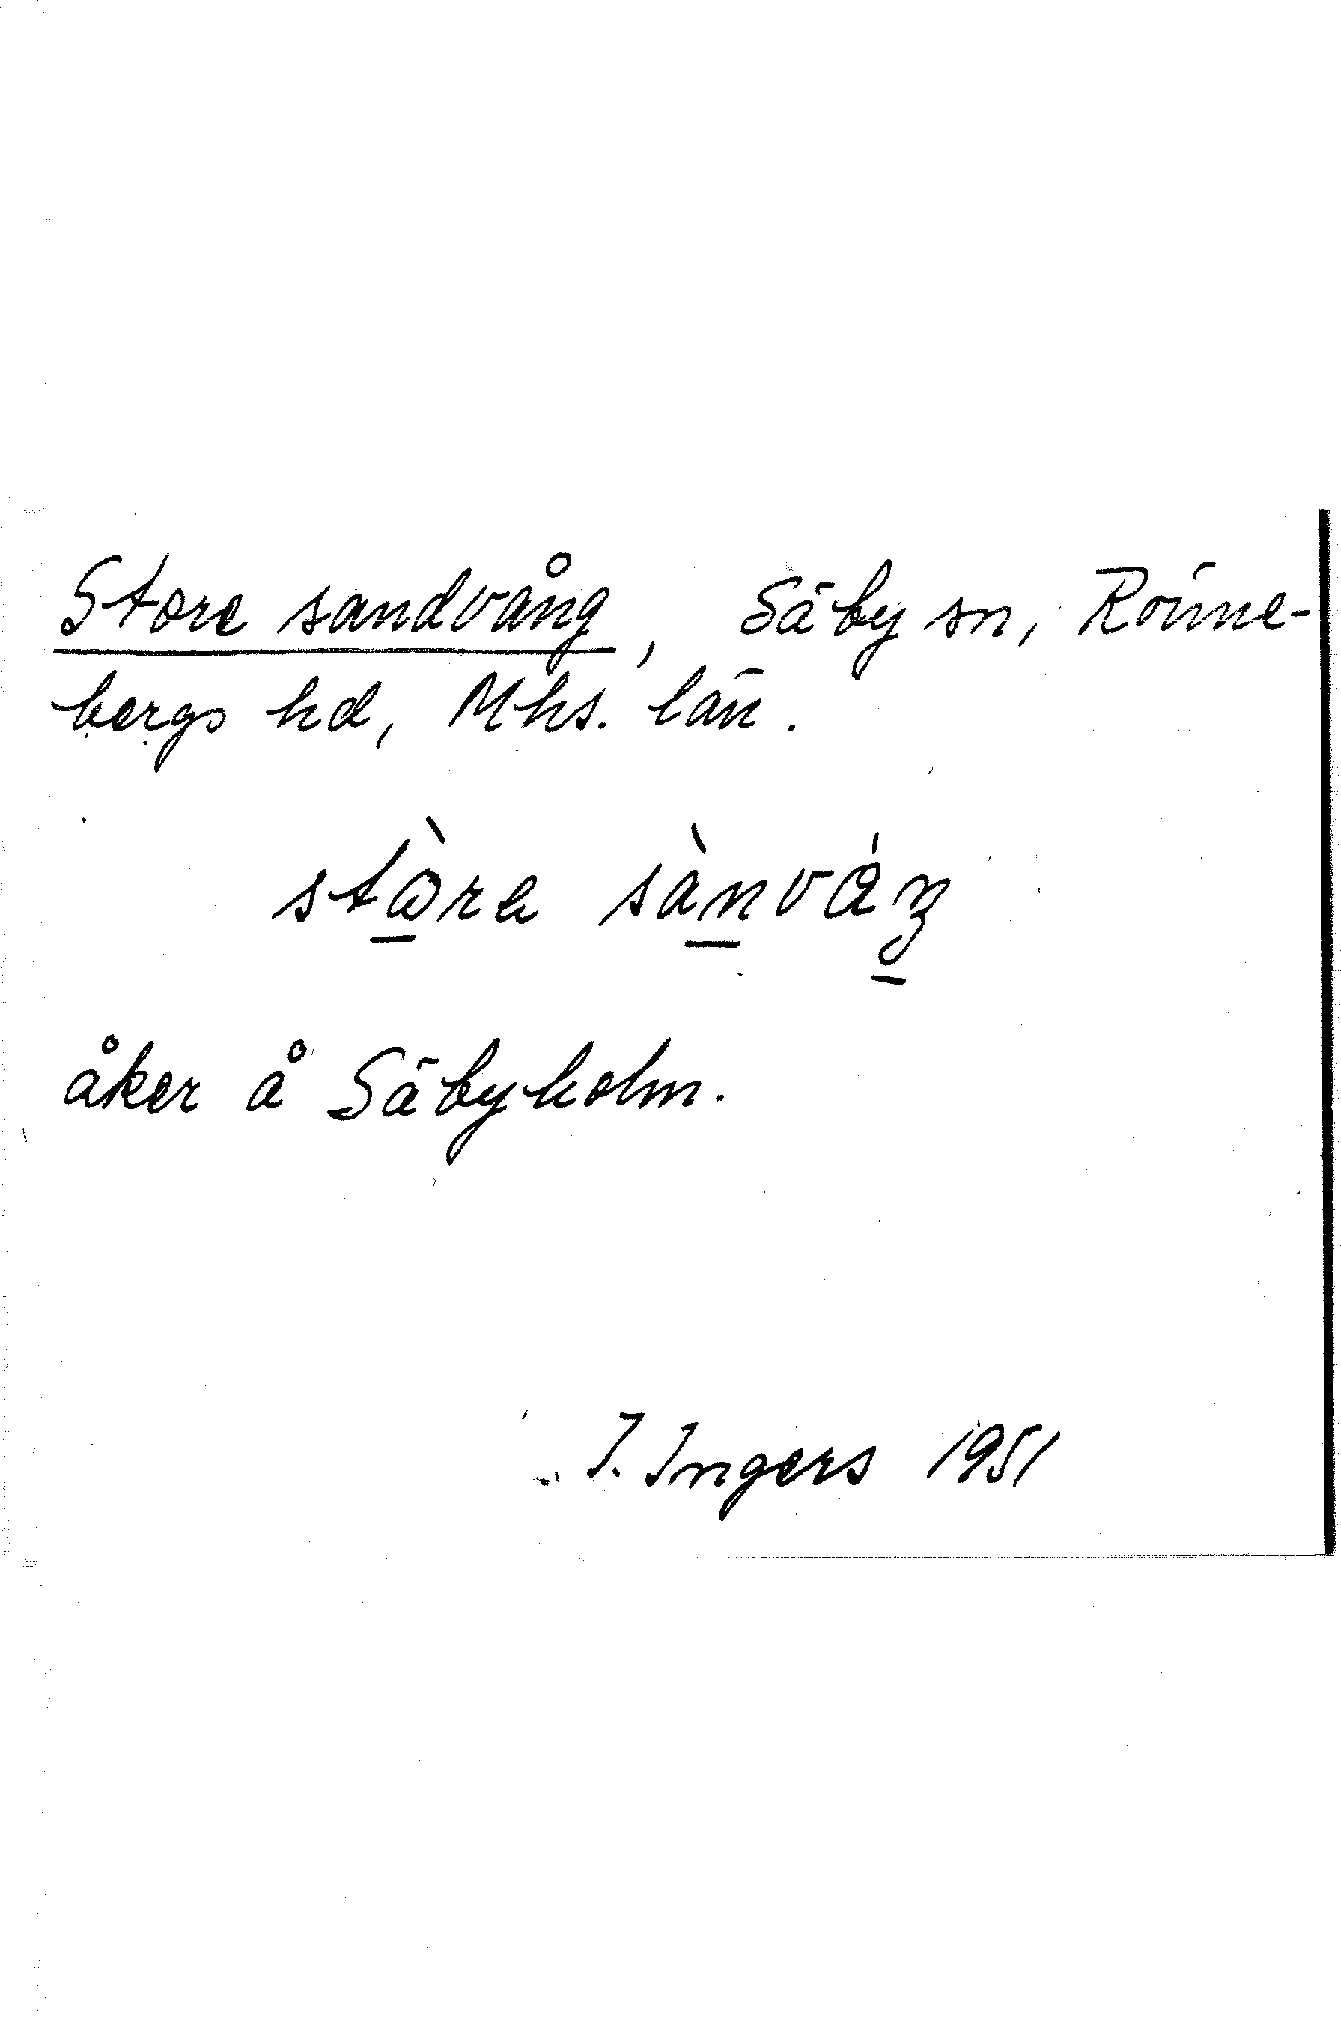 Store sandvång, Säby sn, Rönne-
bergs hd, Mhs. län.
stɷ̀ra sànvɑ́ŋ
åker å Säbyholm.
I. Ingers 1951